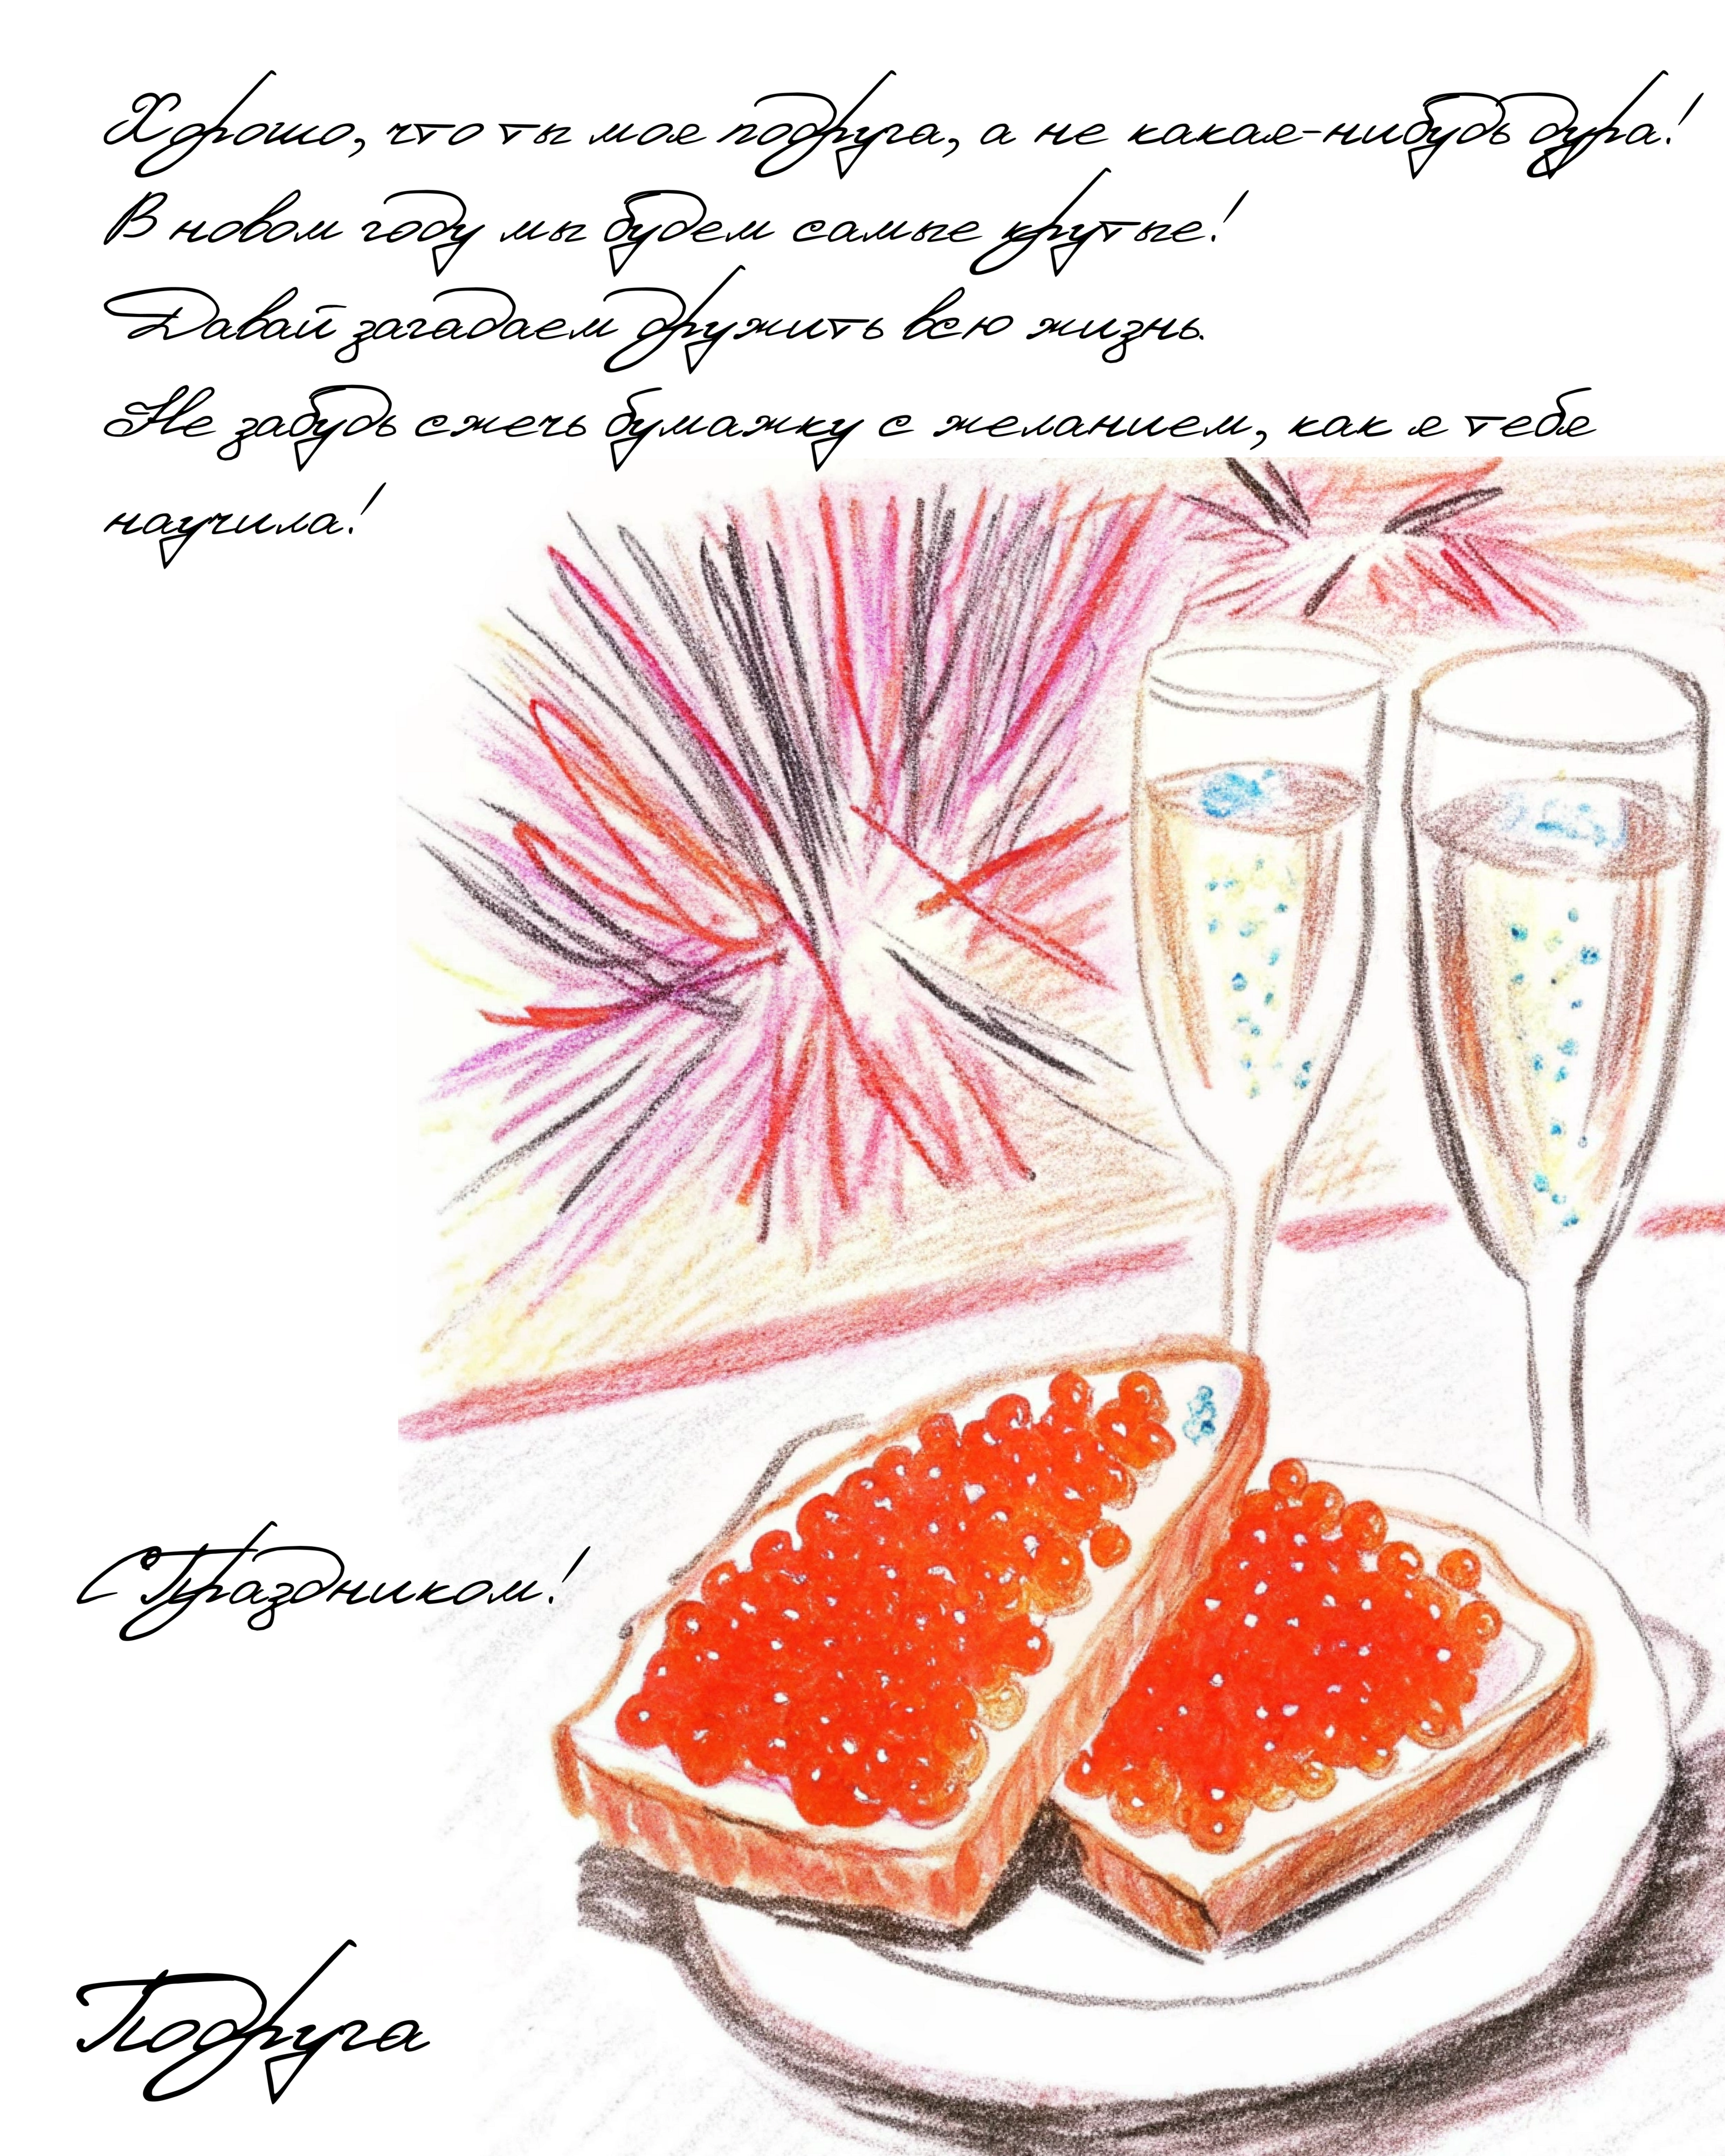 Хорошо, что ты моя подруга, а не какая-нибудь дура!
В новом году мы будем самые крутые!
Давай загадаем дружить всю жизнь.
Не забудь сжечь бумажку с желанием, как я тебя
научила!
С Праздником!
Подруга